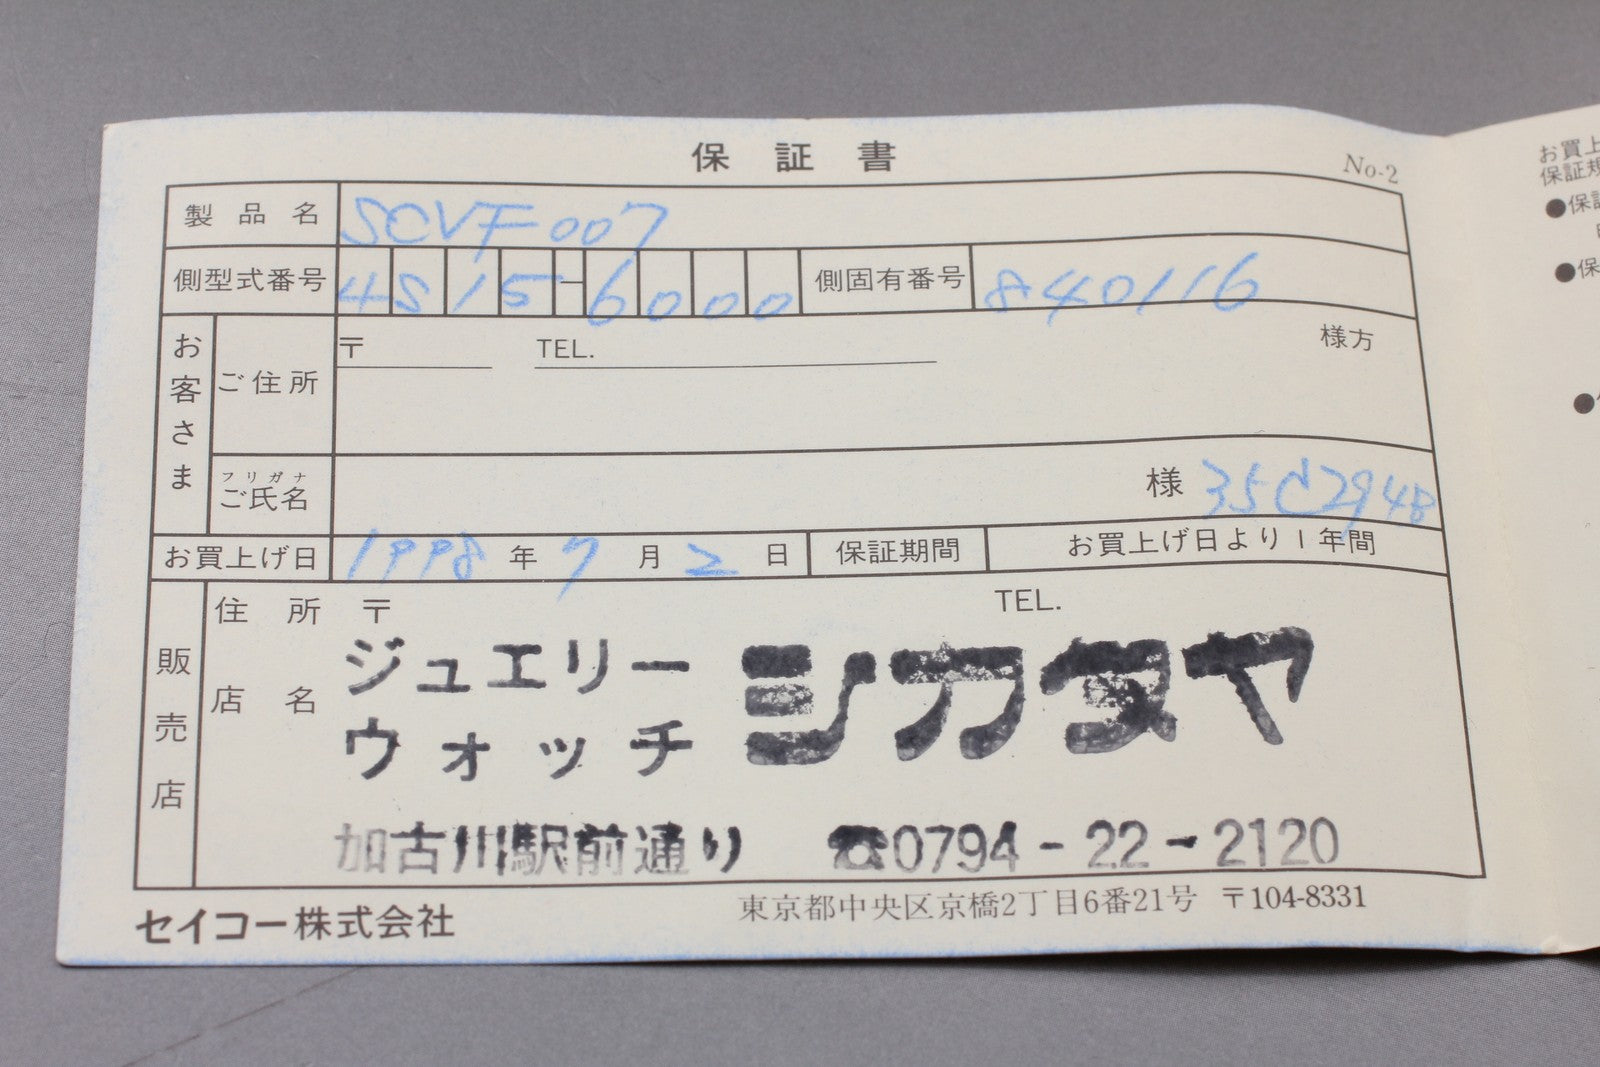 保証書
No-2
製品名 SCVF007
側型式番号 4S15-6000 側固有番号 840116
お客さま
ご住所 〒 TEL. 様方
フリガナ
ご氏名 様 35C2948
お買上げ日 1998年7月2日 保証期間 お買上げ日より1年間
販売店
住所 〒 TEL.
店名
ジュエリー
ウォッチ
シカタヤ
加古川駅前通り ☎0794-22-2120
セイコー株式会社 東京都中央区京橋2丁目6番21号 〒104-8331
お買上
保証規
●保証
●保